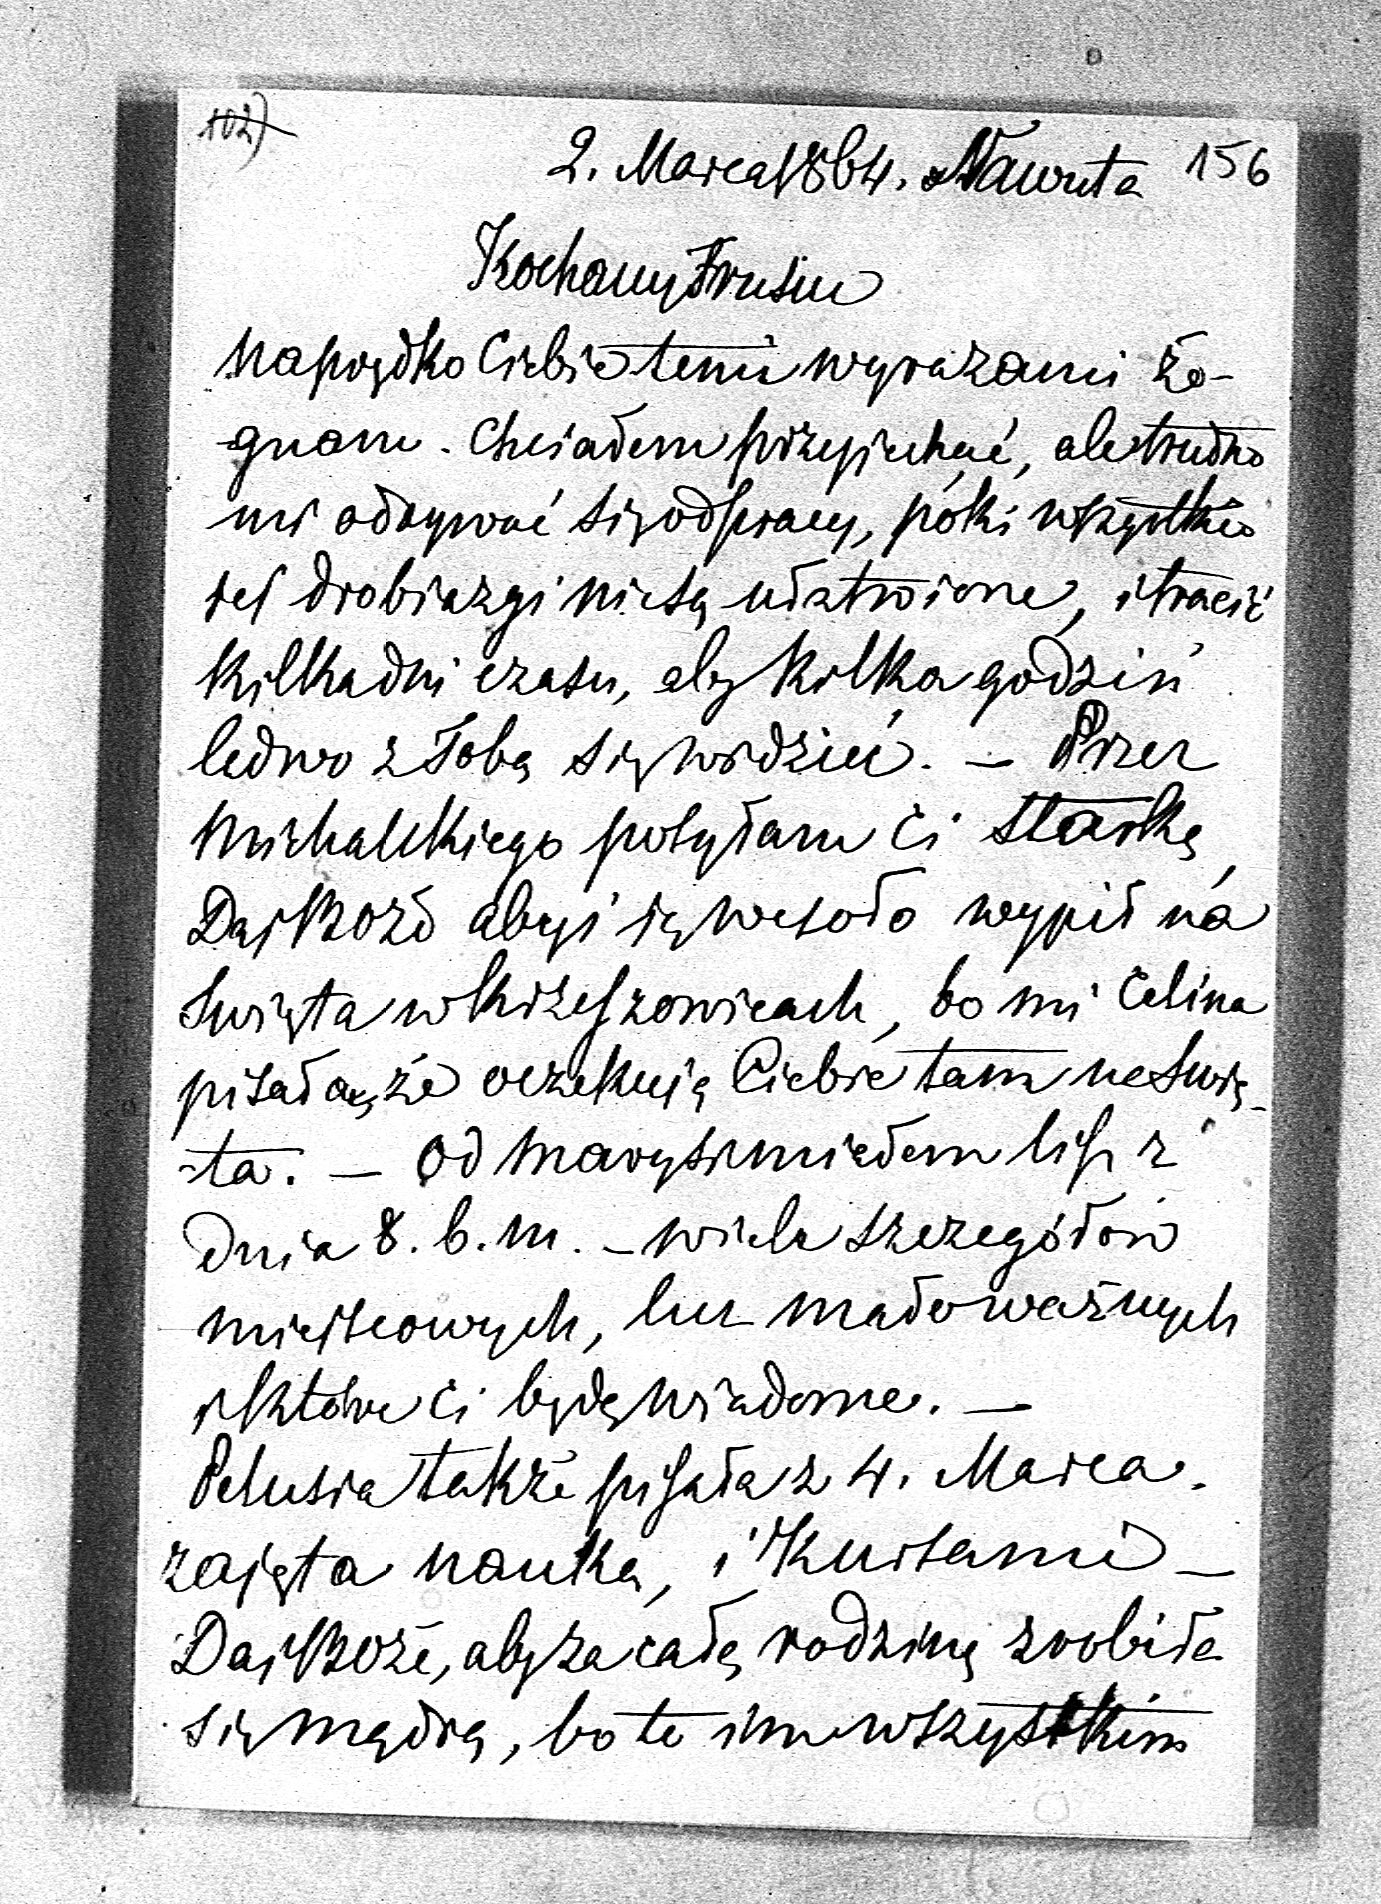 102)
2. Marca 1864. Sławuta 156
Kochany Frusiu
Naprędko Ciebie temi wyrazami że-
gnam. Chciałem przyjechać, ale trudno
mi odrywać się od pracy, póki wszystkie
te drobiazgi nie są ułatwione, i tracić
kilka dni czasu, aby kilka godzin
ledwo z Tobą się widzieć. — Przez
Michalskiego posyłam Ci starkę,
Daj Boże abyś ją wesoło wypił na
Święta w Krzeszowicach, bo mi Celina
pisała, że oczekują Ciebie tam na Świę-
ta. — Od Marysi miałem list z
dnia 8. b. m. — wiele szczegółów
miejscowych, lecz mało ważnych
i które Ci będą wiadome. —
Pelusia także pisała z 4. Marca.
zajęta nauką, i kursami —
Daj Boże, aby za całą rodzinę zrobiła
się mądrą, bo te inne wszystkim